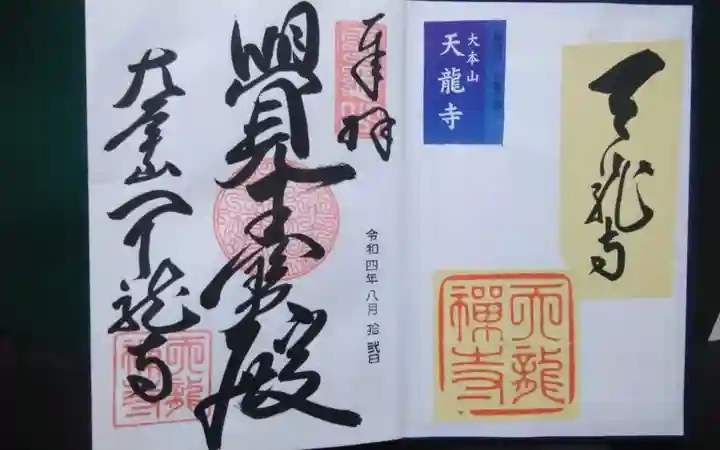 天龍寺
大本山
天龍寺
天龍
禅寺
奉拝
令和四年八月拾弐日
覺王寶殿
大本山天龍寺
天龍
禅寺